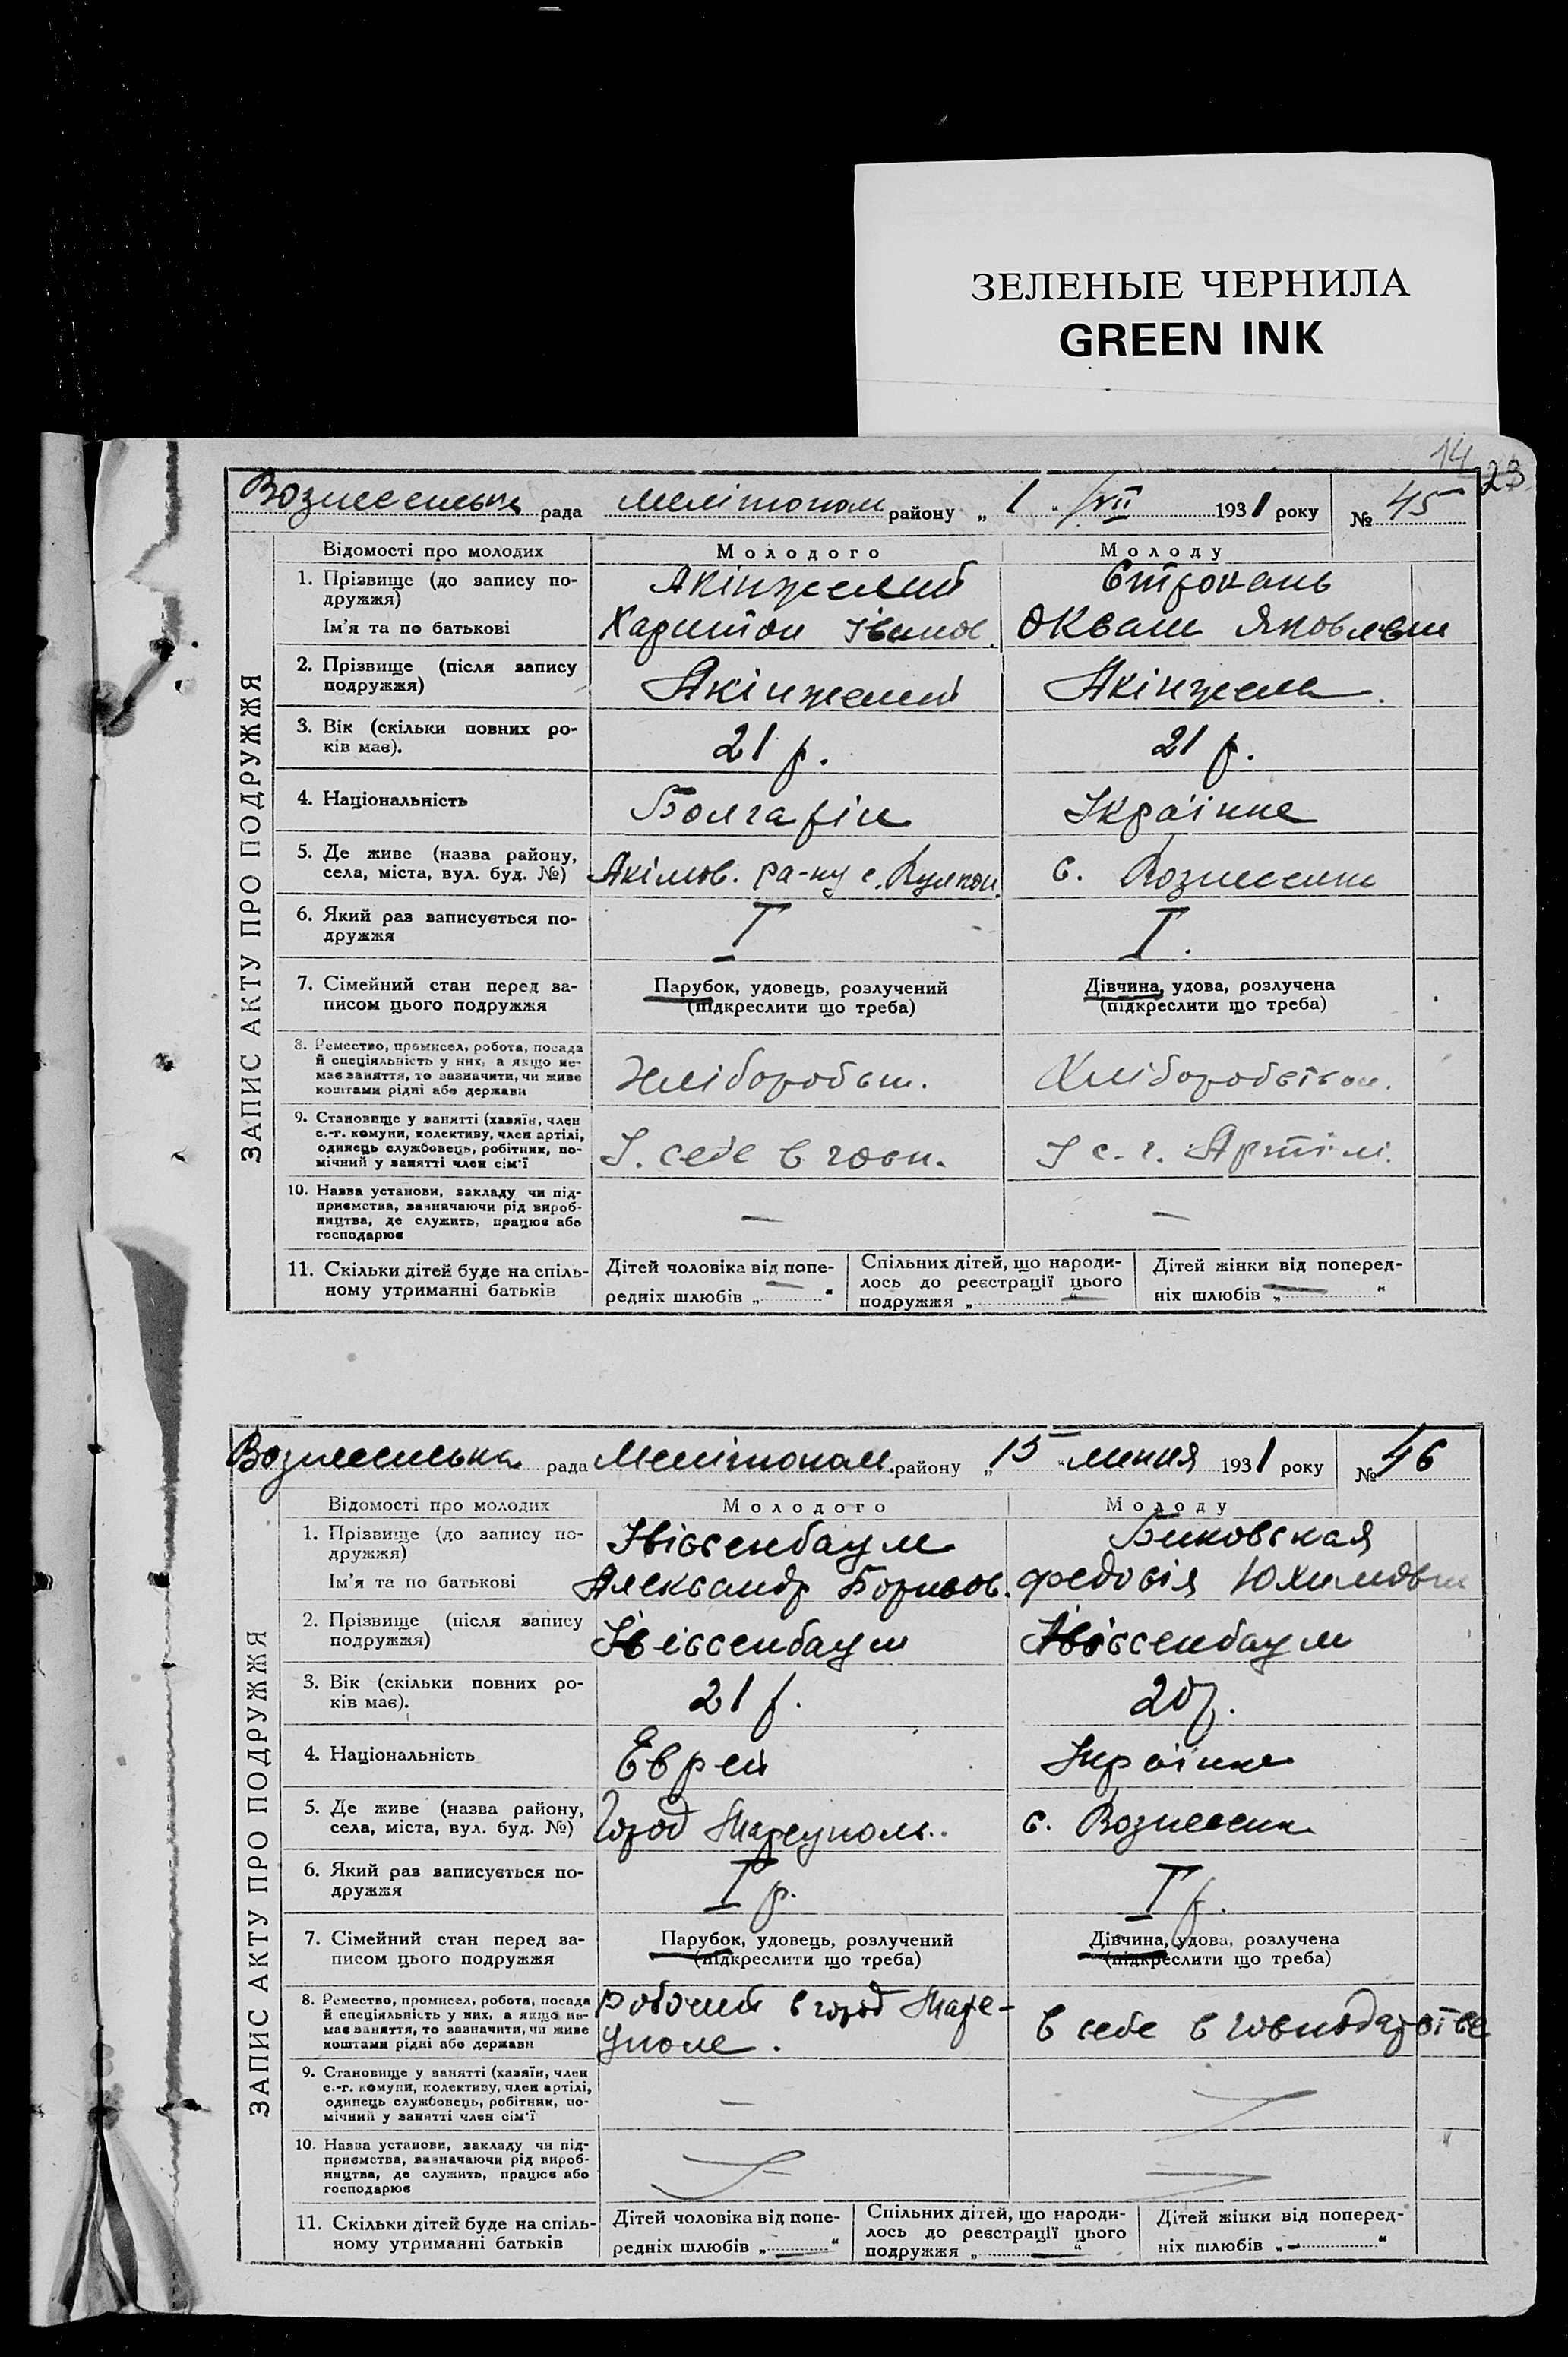 ЗЕЛЕНЫЕ ЧЕРНИЛА
GREEN INK
14
23
Вознесенська рада Мелітопол району „ 1 " /VII 1931 року № 45
ЗАПИС АКТУ ПРО ПОДРУЖЖЯ
Відомості про молодих Молодого Молоду
1. Прізвище (до запису по-
дружжя)
Акінжелий
Ім'я та по батькові
Харитон Іванов.
Яковлевн
2. Прізвище (після запису
подружжя)
Акінжелий Акінжела
3. Вік (скільки повних ро-
ків має).
21 р. 21 р.
4. Національність
Болгарін Українка
5. Де живе (назва району,
села, міста, вул. буд. №)
Акімов. ра-ну с. с. Вознесенка
6. Який раз записується по-
дружжя
I I.
7. Сімейний стан перед за-
писом цього подружжя
Парубок, удовець, розлучений
(підкреслити що треба)
Дівчина, удова, розлучена
(підкреслити що треба)
8. Ремество, промисел, робота, посада
й спеціяльність у них, а якщо не-
має заняття, то зазначити, чи живе
коштами рідні або держави
Хліборобств.
9. Становище у занятті (хазяїн, член
с.-г. комуни, колективу, член артілі,
одинець службовець, робітник, по-
мічний у занятті член сім'ї
У себе в госп. У с.-г. Артілі.
10. Назва установи, закладу чи під-
приємства, зазначаючи рід вироб-
ництва, де служить, працює або
господарює
— —
11. Скільки дітей буде на спіль-
ному утриманні батьків
Дітей чоловіка від попе-
редніх шлюбів „ — "
Спільних дітей, що народи-
лось до реєстрації цього
подружжя „ — "
Дітей жінки від поперед-
ніх шлюбів „ — "
Вознесенська рада Мелітопол. району „ 15 " липня 1931 року № 46
ЗАПИС АКТУ ПРО ПОДРУЖЖЯ
Відомості про молодих Молодого Молоду
1. Прізвище (до запису по-
дружжя)
Биковская
Ім'я та по батькові
Александр Борисов. Федосія Юхимовн
2. Прізвище (після запису
подружжя)
3. Вік (скільки повних ро-
ків має).
21 р. 20 р.
4. Національність
Еврей Українка
5. Де живе (назва району,
села, міста, вул. буд. №)
Город Мареуполь. с. Вознесенка
6. Який раз записується по-
дружжя
I р. I р.
7. Сімейний стан перед за-
писом цього подружжя
Парубок, удовець, розлучений
(підкреслити що треба)
Дівчина, удова, розлучена
(підкреслити що треба)
8. Ремество, промисел, робота, посада
й спеціяльність у них, а якщо не-
має заняття, то зазначити, чи живе
коштами рідні або держави
Робочий в город Маре-
уполе.
в себе в господарстве
9. Становище у занятті (хазяїн, член
с.-г. комуни, колективу, член артілі,
одинець службовець, робітник, по-
мічний у занятті член сім'ї
—
10. Назва установи, закладу чи під-
приємства, зазначаючи рід вироб-
ництва, де служить, працює або
господарює
11. Скільки дітей буде на спіль-
ному утриманні батьків
Дітей чоловіка від попе-
редніх шлюбів „ — "
Спільних дітей, що народи-
лось до реєстрації цього
подружжя „ — "
Дітей жінки від поперед-
ніх шлюбів „ — "